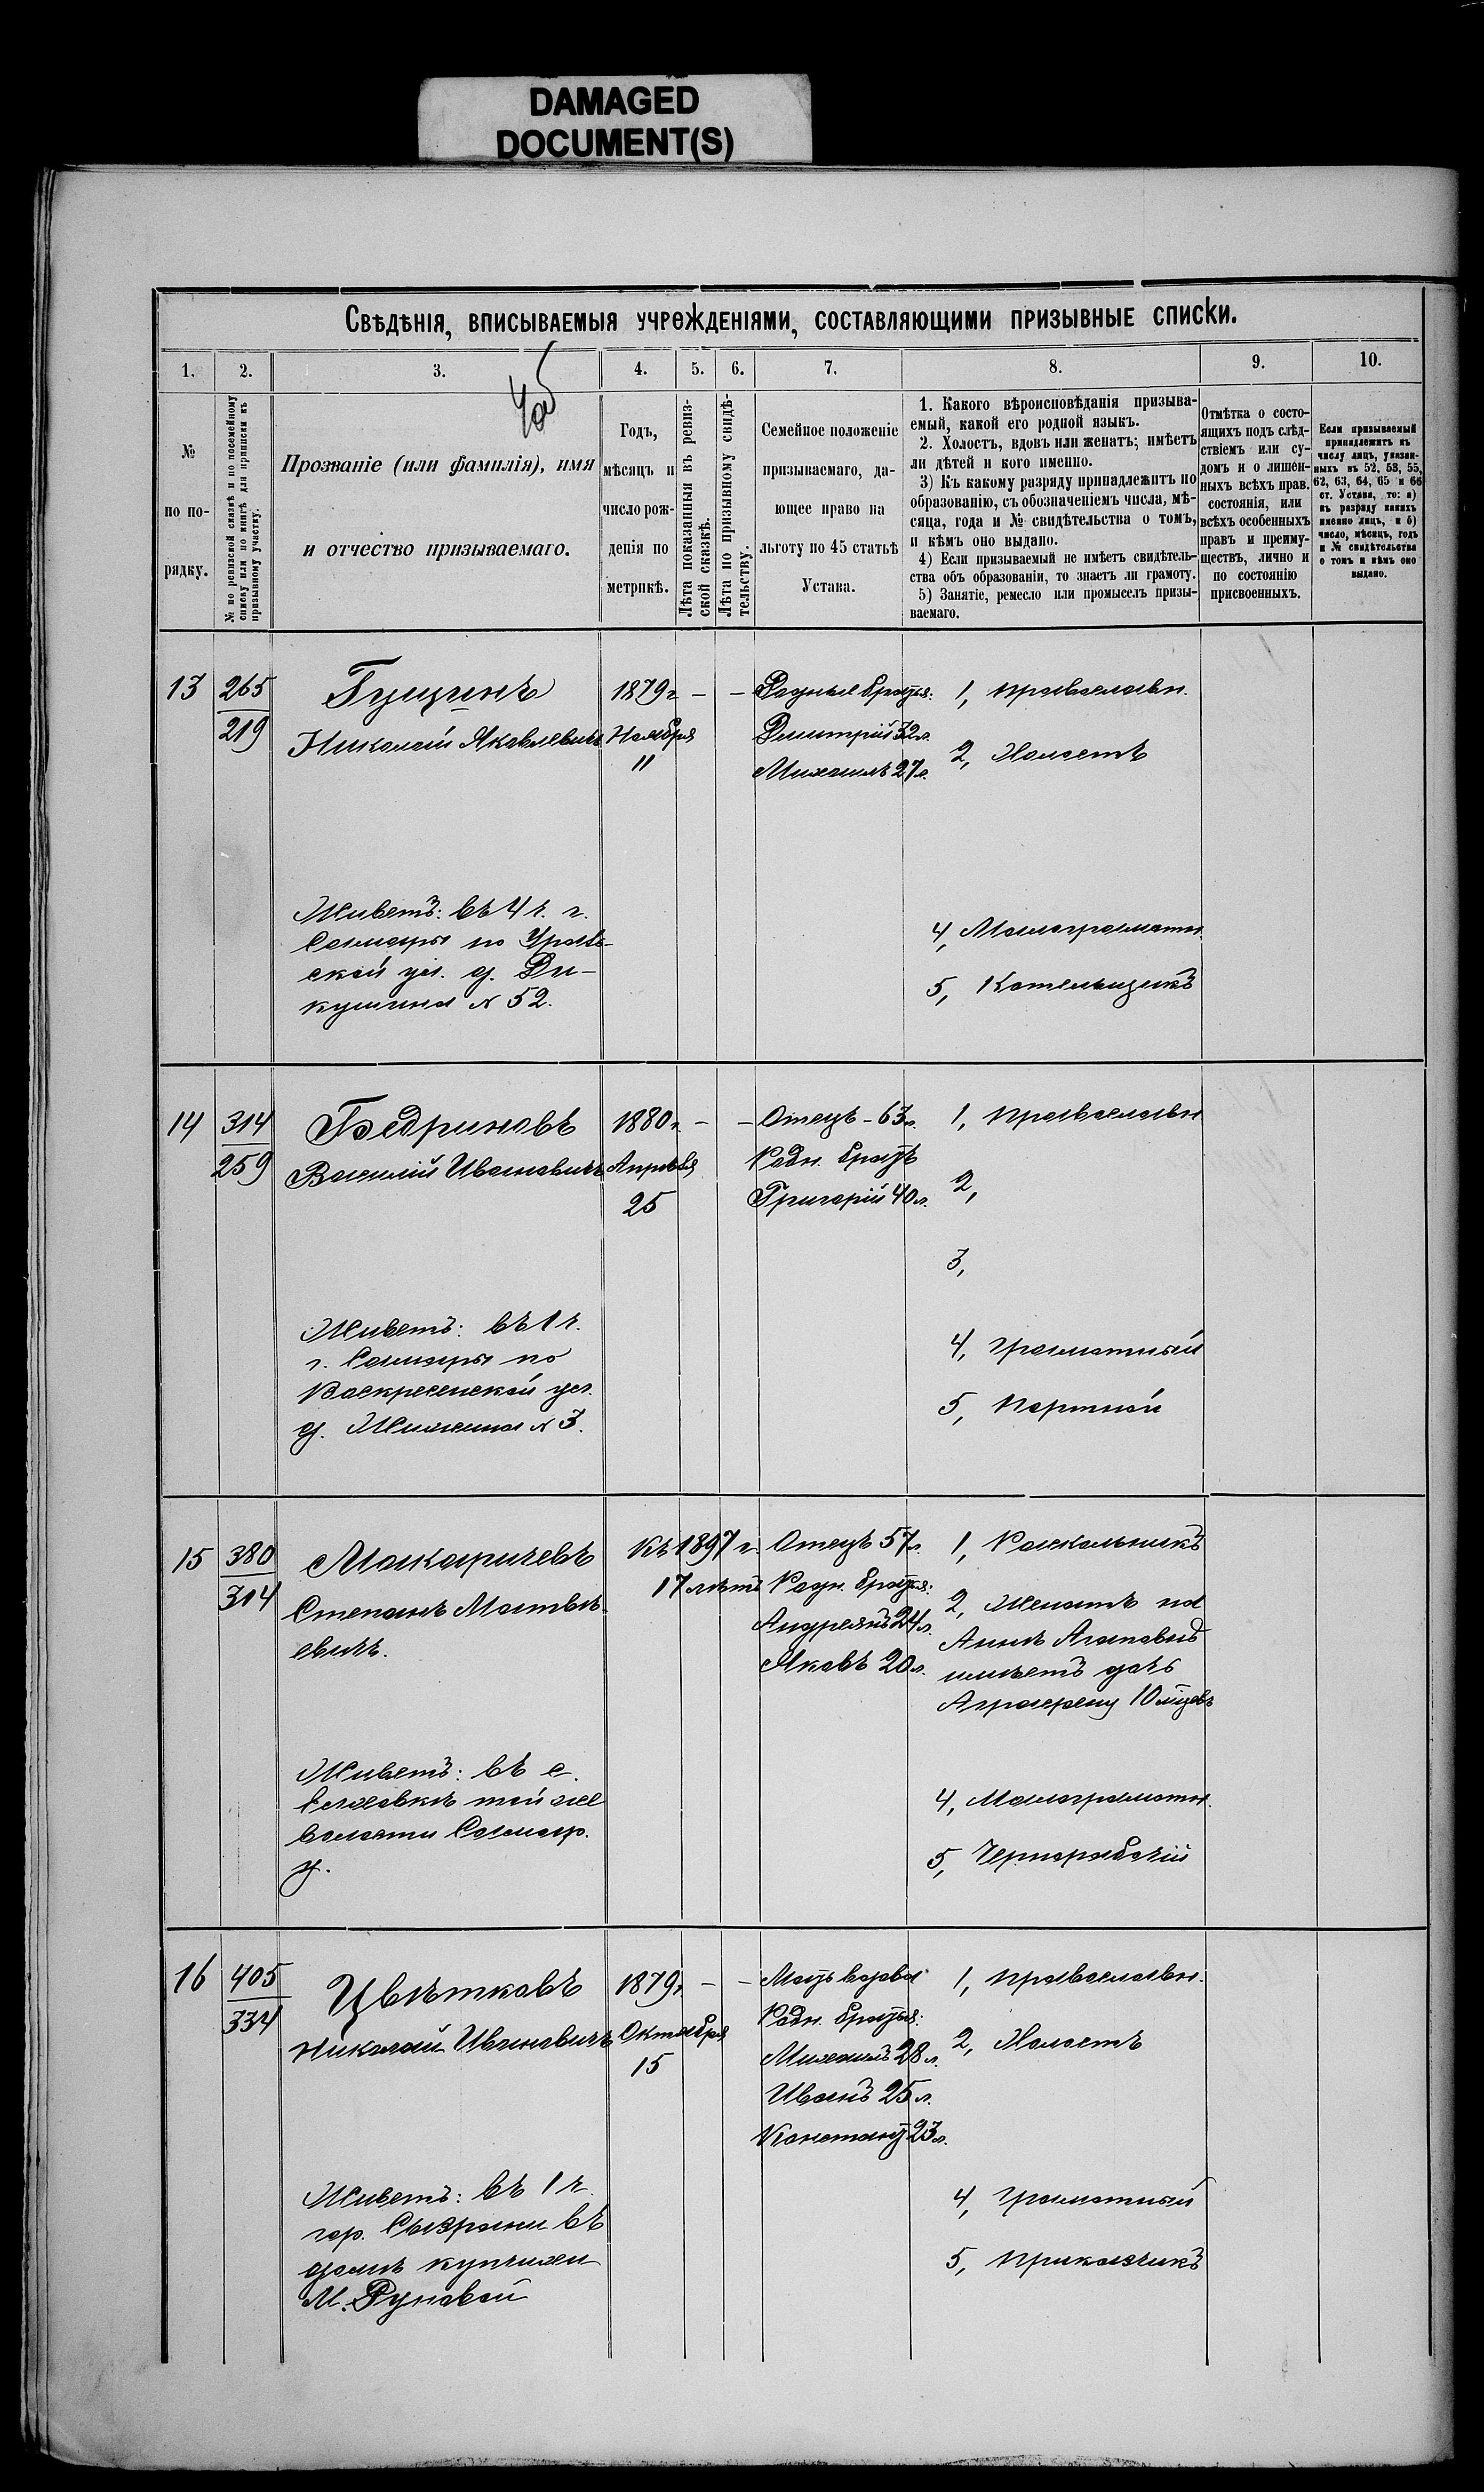 DAMAGED
DOCUMENT(S)
Свѣдѣнія, вписываемыя учрежденіями, составляющими призывные списки.
1.
2.
3.
4.
5.
6.
7.
8.
9.
10.
№
по по-
рядку.
№ по ревизской сказкѣ и по посемейному
списку или по книгѣ для приписки къ
призывному участку.
Прозваніе (или фамилія), имя
и отчество призываемаго.
Годъ,
мѣсяцъ и
число рож-
денія по
метрикѣ.
Лѣта показанныя въ ревиз-
ской сказкѣ.
Лѣта по призывному свидѣ-
тельству.
Семейное положеніе
призываемаго, да-
ющее право на
льготу по 45 статьѣ
Устава.
1. Какого вѣроисповѣданія призыва-
емый, какой его родной языкъ.
2. Холостъ, вдовъ или женатъ; имѣетъ
ли дѣтей и кого именно.
3) Къ какому разряду принадлежитъ по
образованію, съ обозначеніемъ числа, мѣ-
сяца, года и № свидѣтельства о томъ,
и кѣмъ оно выдано.
4) Если призываемый не имѣетъ свидѣтель-
ства объ образованіи, то знаетъ ли грамоту.
5) Занятіе, ремесло или промыселъ призы-
ваемаго.
Отмѣтка о состо-
ящихъ подъ слѣд-
ствіемъ или су-
домъ и о лишен-
ныхъ всѣхъ прав.
состоянія, или
всѣхъ особенныхъ
правъ и преиму-
ществъ, лично и
по состоянію
присвоенныхъ.
Если призываемый
принадлежитъ къ
числу лицъ, указан-
ныхъ въ 52, 53, 55,
62, 63, 64, 65 и 66
ст. Устава, то: а)
къ разряду какихъ
именно лицъ, и б)
число, мѣсяцъ, годъ
и № свидѣтельства
о томъ и кѣмъ оно
выдано.
13
265
219
Гущинъ
Николай Яковлевичъ
Живетъ: въ 4 ч. г.
Самары по Ураль-
ской ул. д. Ди-
кушина № 52.
1879 г.
Ноября
11
–
–
Родные братья:
Димитрій 32 л.
Михаилъ 27 л.
1, Православн.
2, Холостъ
4, Малограмотн.
5, Котельщикъ
14
314
259
Бедриновъ
Василій Ивановичъ
Живетъ: въ 1 ч.
г. Самары по
Воскресенской ул.
д. № 3.
1880 г.
Апрѣля
25
–
–
Отецъ – 63 л.
Родн. братъ
Григорій 40 л.
1, Православн
2,
3,
4, Грамотный
5, Портной
15
380
314
Макарычевъ
Степанъ Матвѣ-
евичъ.
Живетъ: въ с.
той же
волости Самар.
у.
Къ 1897 г.
17 лѣтъ
Отецъ 57 л.
Родн. братья:
Андреянъ 24 л.
Яковъ 20 л.
1, Раскольникъ
2, Женатъ на
Аннѣ Агаповнѣ
имѣетъ дочь
Аграфену 10 мѣсцевъ
4, Малограмотн.
5, Чернорабочій
16
405
334
Цвѣтковъ
Николай Ивановичъ
Живетъ: въ 1 ч.
гор. Сызрани въ
домѣ купчихи
М. Руновой
1879 г.
Октября
15
–
–
Мать вдова
Родн. братья:
Михаилъ 28 л.
Иванъ 25 л.
Констант 23 л.
1, Православн.
2, Холостъ
4, Грамотный
5, Приказчикъ